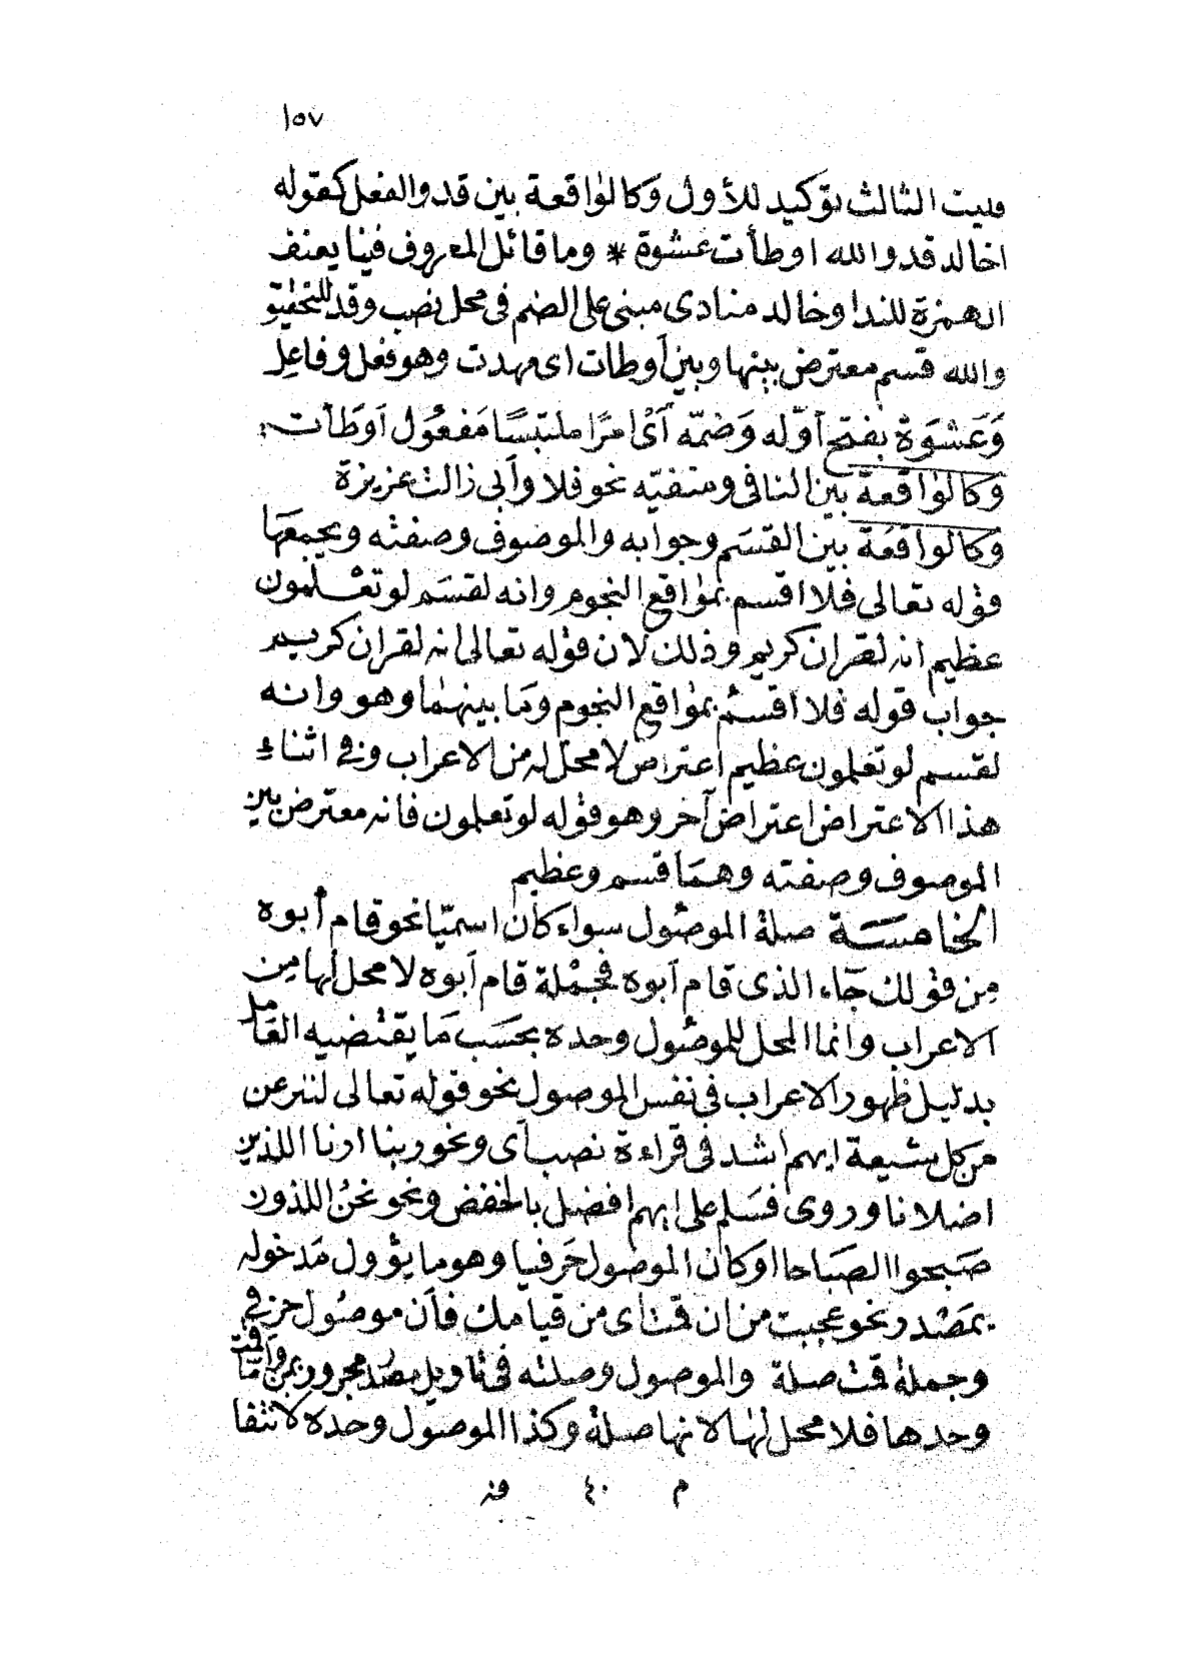 ١٥٧
وليت الثالث توكيد للأول وكالواقعة بين قد والفعل كقوله
اخالد قد والله اوطأت عشوة * وما قائل المعروف فينا يعنف
الهمزة للندا وخالد منادى مبنى على الضم فى محل نصب وقد للتحقيق
والله قسم معترض بينها وبين أوطات اى مهدت وهو فعل وفاعل
وَعَشوَة بفتح أوّله وَضمّه آىْ امرًا ملتبسًا مَفعُول اَوطَأت
وكالواقعة بين النافى ومنفيّه نحو فلا وأبى زالت عزيزة
وكالواقعة بين القسَم وجوابه والموصوف وصفته ويجمعهَا
قوله تعالى فلا اقسم بمواقع النجوم وانه لقسَم لو تعْلمون
عظيم انه لقران كريم وذلك لان قوله تعالى انه لقران كريم
جواب قوله فلا اقسم بمواقع النجوم ومَا بينهما وهو وانه
لقسم لو تعلمون عظيم اعتراض لا محل له من الاعراب وفى اثناء
هذا الاعتراض اعتراض آخر وهو قوله لو تعلمون فانه معترض بين
الموصوف وصفته وهمَا قسم وعظيم
الخامسَة صلة الموصُول سواء كان اسميّا نحو قام أبوه
مِن قولك جَاء الذى قام آبوه فجمْلة قام اَبوه لا محل لها مِن
الاعراب وانما المحل للموصُول وحده بحسَب مَا يقتضيه العَامل
بدليل ظهور الاعراب فى نفس الموصول نحو قوله تعالى لننزعن
من كل شيعة ايهم اشد فى قراءة نصب اى ونحو ربنا ارنا اللذين
اضلانا وروى فسَلم على ايهم افضل بالخفض ونحو نحنُ اللذون
صَبحوا الصَباحا او كان الموصُول حَرفيا وهو ما يؤول مَدخوله
بمَصْدر نحو عجبت من ان قمت اى من قيامك فاَن موصُول حرفى
وجملة قمت صلة والموصول وصلته فى تاويل مصدر مجرور بمن وامّا قمت
وحدها فلا محل لها لانها صلة وكذا الموصول وحده لانتفا
م ٤٠ فز